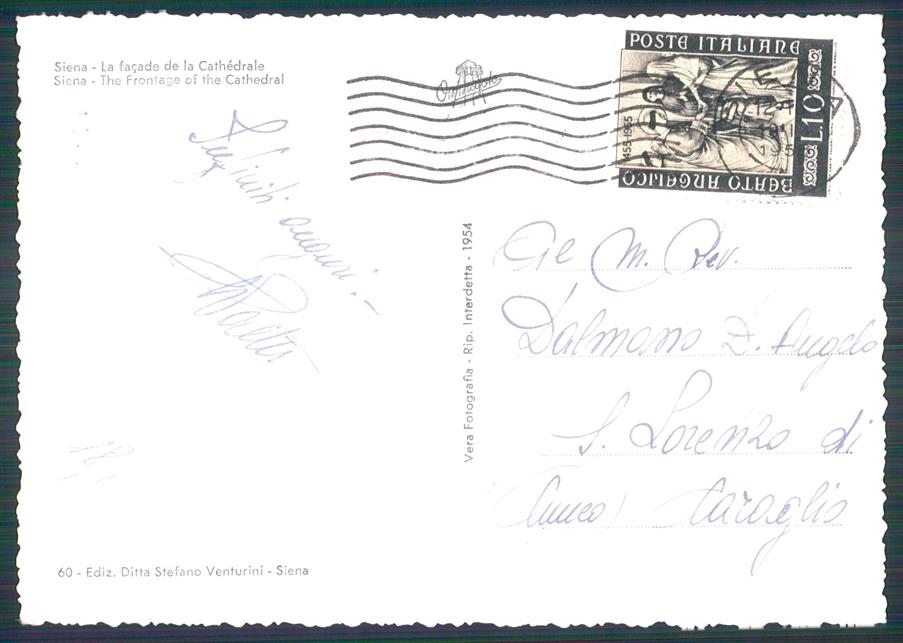 Siena - La façade de la Cathédrale
Siena - The Frontage of the Cathedral
auguri. -
POSTE ITALIANE
L.10
1455-1955
BEATO ANGELICO
Vera Fotografia - Rip. Interdetta - 1954
Al M. Rev.
Dalmasso D. Angelo
S. Lorenzo di
(Cuneo) Caraglio
60 - Ediz. Ditta Stefano Venturini - Siena